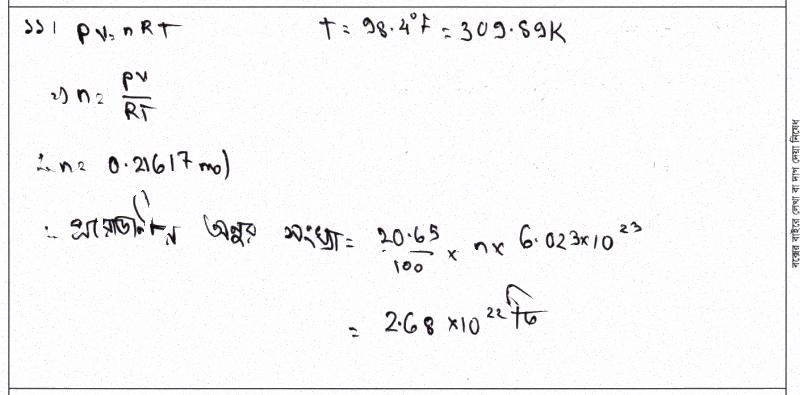 ১১। PV = nRT    T = 98.4°F = 309.89K
⇒ n = PV/RT
∴ n = 0.21617 mol
∴ অনুর সংখ্যা = 20.65/100 × n × 6.023×10²³
= 2.68 ×10²² টি
বক্সের বাইরে লেখা বা দাগ দেয়া নিষেধ